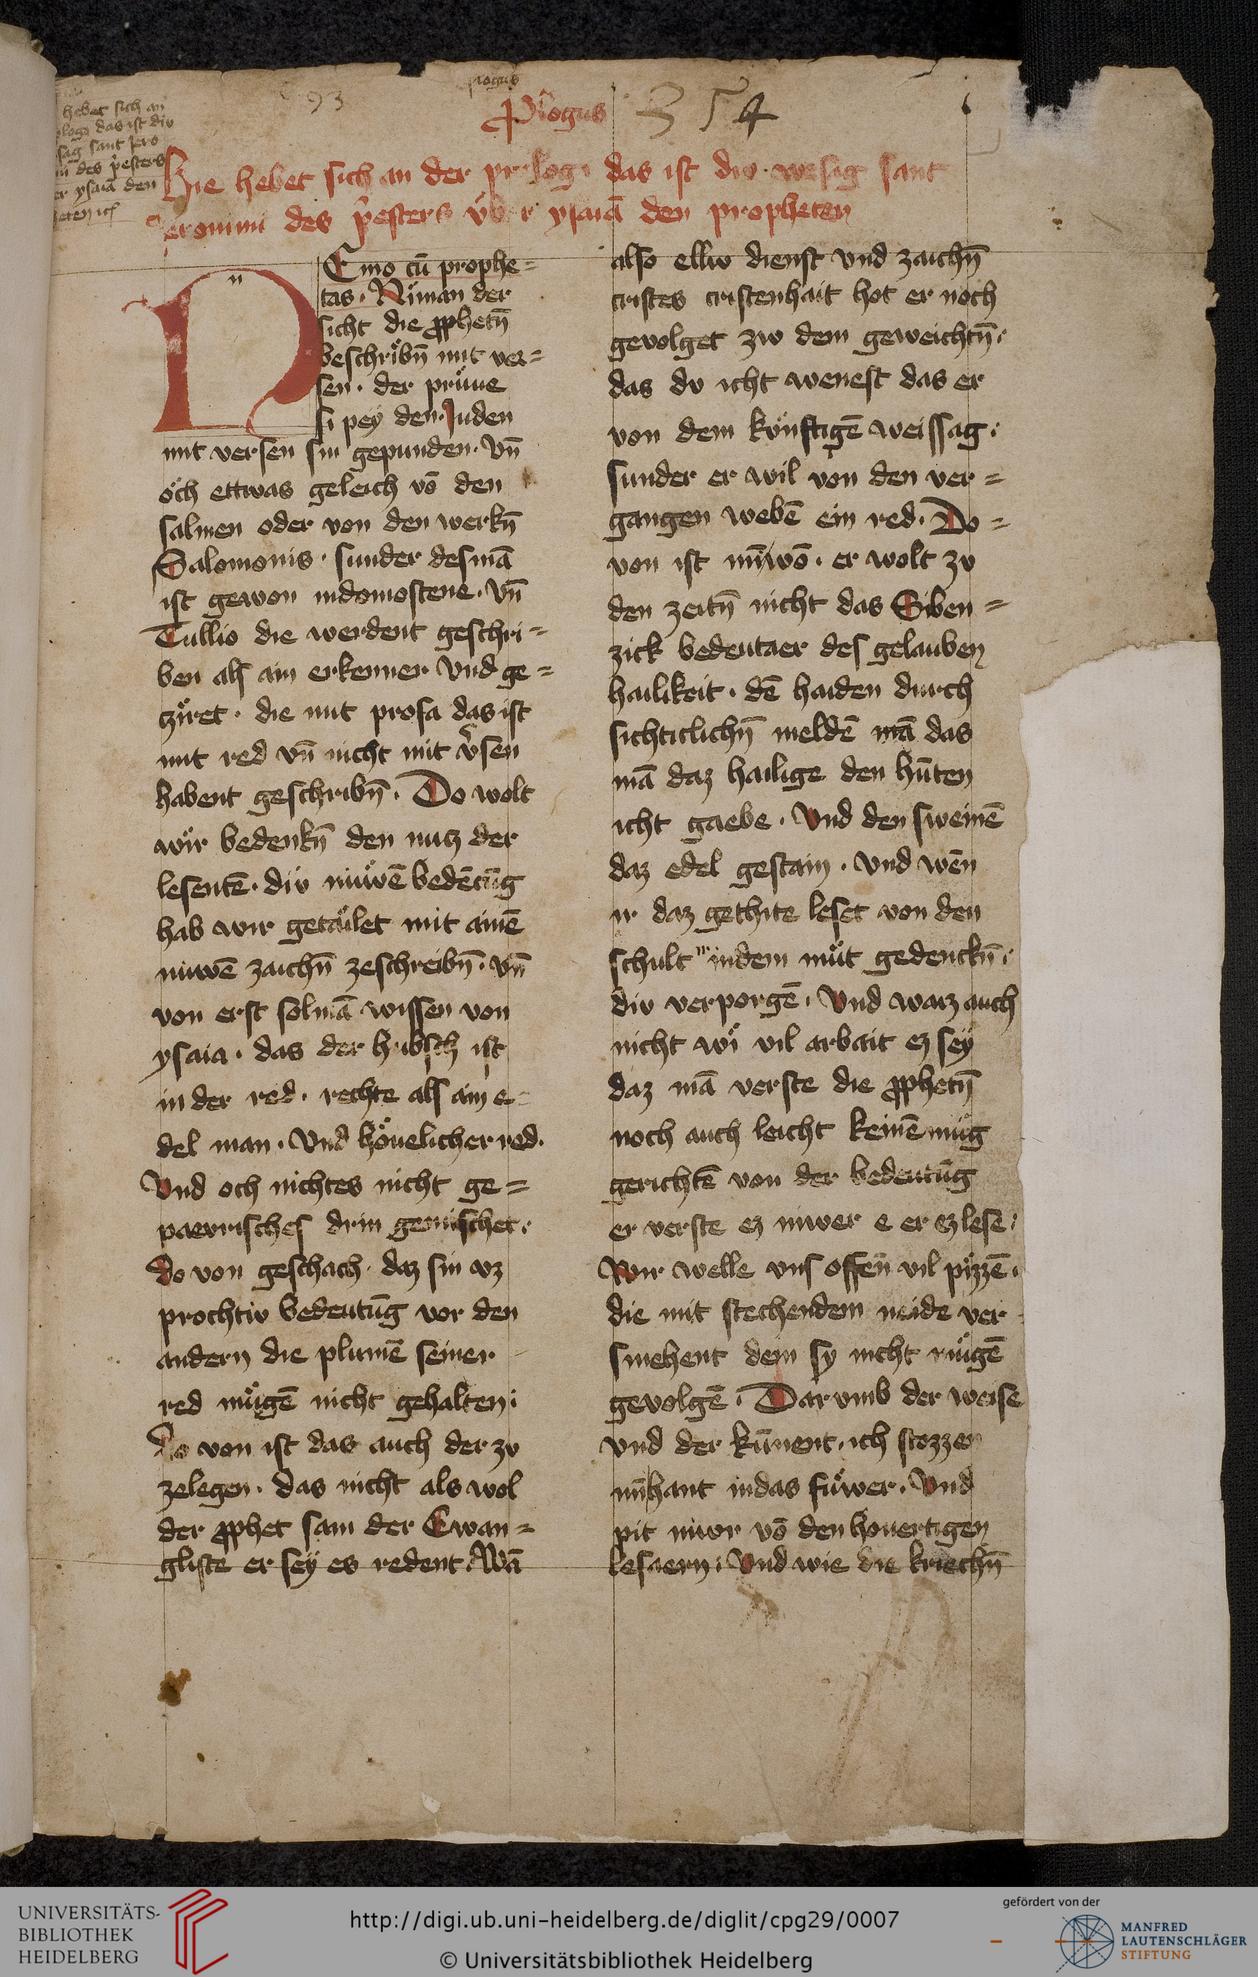 progus
93
P̃rogus
354
hebet sich an
plogo das ist div
sag sant Jero
des p̃esters
ysaiā den
Hie hebet sich an der prolog · das ist div wesag sant
Jeronimi des p̃esters vber ysaiā den propheten
NEmo cū prophe=
tas · Niman der
sicht die ꝓphetn̄
beschribn̄ mit ver=
sen · der prüue
si pey den Juden
mit versen sin gepunden · vn̄
och ettwas geleich vō den
salmen oder von den werkn̄
Salomonis · sunder desmā
ist gewon indemostene · vn̄
Tullio die werdent geschri=
ben als ain erkenner vnd ge=
ziret · die mit prosa das ist
mit red vn̄ nicht mit v̓sen
habent geschribn̄ · Do wolt
wir bedenkn̄ den nutz der
lesentē · div niuwē bedētūg
hab wir getäilet mit ainē
niuwē zaichn̄ zeschreibn̄ · vn̄
von erst solmā wissen von
ysaia · das der hubsch ist
in der red · rechte als ain e=
del man · vnd hoͤuelicher red ·
Vnd och nichtes nicht ge=
paevrisches drin gemischet ·
do von geschach · daz sin vz
prochtiv bedeutūg vor den
andern die plumē seiner
red mügē nicht gehalten ·
do von ist das auch der zv
zelegen · das nicht als wol
der ꝓphet sam der Ewan=
gliste er sey es redent · Wā
also elliv dienst vnd zaichn̄
cristes cristenhait hot er noch
gevolget zw dem geweichtn̄ ·
das dv icht wenest das er
von dem kvnftigē weissag ·
sunder er wil von den ver=
gangen webē ein red · Do=
von ist mīwō · er wolt zv
den zeitn̄ nicht das Siben=
zick bedeutaer des gelauben
hailikeit · dē haiden durch
sichticlichn̄ meldē mā das
mā daz hailige den hūten
icht gaebe · Vnd den sweinē
daz edel gestain · vnd wēn
ir daz gethite leset von den
schult indem müt gedenckn̄ ·
div verporgē · Vnd waiz auch
nicht wi vil arbait ez sey
daz mā verste die ꝓphetn̄
noch auch leicht keinē müg
gerichtē von der bedeutūg
er verste ez niwer e er ez lese ·
Wir welle vns offen̄ vil pizzē ·
die mit stechendem neide ver
smehent dem sy nicht mügē
gevolgē · Dar vmb der weise
vnd der künent · ich stozzen
mīhant indas füwer · Vnd
pit niwr vō den houertigen
lesaern · Vnd wie die kriechn̄
UNIVERSITÄTS-
BIBLIOTHEK
HEIDELBERG
http://digi.ub.uni-heidelberg.de/diglit/cpg29/0007
© Universitätsbibliothek Heidelberg
gefördert von der
MANFRED
LAUTENSCHLÄGER
STIFTUNG